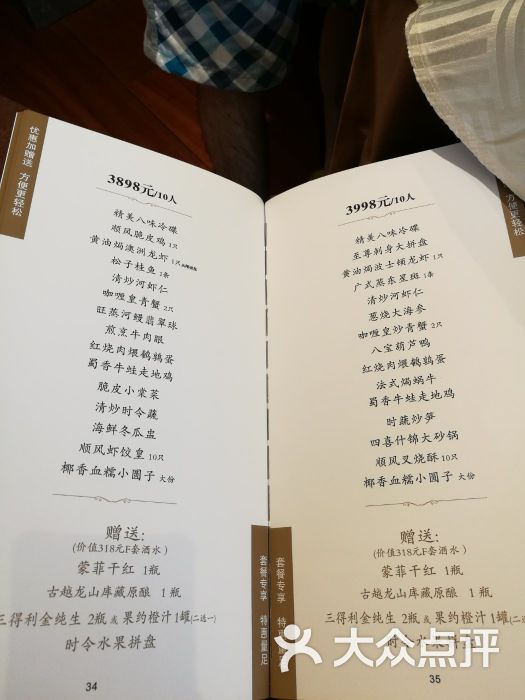 优惠加赠送 方便更轻松
3898元/10人
精美八味冷碟
顺风脆皮鸡 1只
黄油焗澳洲龙虾 1只
松子桂鱼 1条
清炒河虾仁
咖喱皇青蟹 2只
旺蒸河鳗翡翠球
煎烹牛肉眼
红烧肉煨鹌鹑蛋
蜀香牛蛙走地鸡
脆皮小棠菜
清炒时令蔬
海鲜冬瓜盅
顺风虾饺皇 10只
椰香血糯小圆子 大份
赠送:
(价值318元F套酒水)
蒙菲干红 1瓶
古越龙山库藏原酿 1瓶
三得利金纯生 2瓶 或 果约橙汁1罐(二选一)
时令水果拼盘
套餐专享 特惠量足
34
方便更轻松
3998元/10人
精美八味冷碟
至尊刺身大拼盘
黄油焗波士顿龙虾 1只
广式蒸东星斑 1条
清炒河虾仁
葱烧大海参
咖喱皇炒青蟹 2只
八宝葫芦鸭
红烧肉煨鹌鹑蛋
法式焗蜗牛
蜀香牛蛙走地鸡
时蔬炒笋
四喜什锦大砂锅
顺风叉烧酥 10只
椰香血糯小圆子 大份
赠送:
(价值318元F套酒水)
蒙菲干红 1瓶
古越龙山库藏原酿 1瓶
三得利金生 2瓶 或 果约橙汁1罐(二选一)
时令水果拼盘
套餐专享 特惠量足
35
大众点评